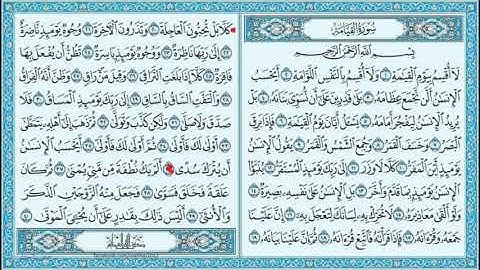 سُورَةُ القِيَامَةِ
بِسْمِ اللَّهِ الرَّحْمَٰنِ الرَّحِيمِ
لَآ أُقْسِمُ بِيَوْمِ ٱلْقِيَٰمَةِ ١ وَلَآ أُقْسِمُ بِٱلنَّفْسِ ٱللَّوَّامَةِ ٢ أَيَحْسَبُ
ٱلْإِنسَٰنُ أَلَّن نَّجْمَعَ عِظَامَهُۥ ٣ بَلَىٰ قَٰدِرِينَ عَلَىٰٓ أَن نُّسَوِّىَ بَنَانَهُۥ ٤ بَلْ
يُرِيدُ ٱلْإِنسَٰنُ لِيَفْجُرَ أَمَامَهُۥ ٥ يَسْـَٔلُ أَيَّانَ يَوْمُ ٱلْقِيَٰمَةِ ٦ فَإِذَا بَرِقَ
ٱلْبَصَرُ ٧ وَخَسَفَ ٱلْقَمَرُ ٨ وَجُمِعَ ٱلشَّمْسُ وَٱلْقَمَرُ ٩ يَقُولُ ٱلْإِنسَٰنُ
يَوْمَئِذٍ أَيْنَ ٱلْمَفَرُّ ١٠ كَلَّا لَا وَزَرَ ١١ إِلَىٰ رَبِّكَ يَوْمَئِذٍ ٱلْمُسْتَقَرُّ ١٢ يُنَبَّؤُا۟
ٱلْإِنسَٰنُ يَوْمَئِذٍۭ بِمَا قَدَّمَ وَأَخَّرَ ١٣ بَلِ ٱلْإِنسَٰنُ عَلَىٰ نَفْسِهِۦ بَصِيرَةٌ ١٤
وَلَوْ أَلْقَىٰ مَعَاذِيرَهُۥ ١٥ لَا تُحَرِّكْ بِهِۦ لِسَانَكَ لِتَعْجَلَ بِهِۦٓ ١٦ إِنَّ عَلَيْنَا
جَمْعَهُۥ وَقُرْءَانَهُۥ ١٧ فَإِذَا قَرَأْنَٰهُ فَٱتَّبِعْ قُرْءَانَهُۥ ١٨ ثُمَّ إِنَّ عَلَيْنَا بَيَانَهُۥ ١٩
كَلَّا بَلْ تُحِبُّونَ ٱلْعَاجِلَةَ ٢٠ وَتَذَرُونَ ٱلْءَاخِرَةَ ٢١ وُجُوهٌ يَوْمَئِذٍ نَّاضِرَةٌ
٢٢ إِلَىٰ رَبِّهَا نَاظِرَةٌ ٢٣ وَوُجُوهٌ يَوْمَئِذٍۭ بَاسِرَةٌ ٢٤ تَظُنُّ أَن يُفْعَلَ بِهَا
فَاقِرَةٌ ٢٥ كَلَّآ إِذَا بَلَغَتِ ٱلتَّرَاقِىَ ٢٦ وَقِيلَ مَنْ رَاقٍ ٢٧ وَظَنَّ أَنَّهُ ٱلْفِرَاقُ
٢٨ وَٱلْتَفَّتِ ٱلسَّاقُ بِٱلسَّاقِ ٢٩ إِلَىٰ رَبِّكَ يَوْمَئِذٍ ٱلْمَسَاقُ ٣٠ فَلَا
صَدَّقَ وَلَا صَلَّىٰ ٣١ وَلَٰكِن كَذَّبَ وَتَوَلَّىٰ ٣٢ ثُمَّ ذَهَبَ إِلَىٰٓ أَهْلِهِۦ يَتَمَطَّىٰٓ
٣٣ أَوْلَىٰ لَكَ فَأَوْلَىٰ ٣٤ ثُمَّ أَوْلَىٰ لَكَ فَأَوْلَىٰٓ ٣٥ أَيَحْسَبُ ٱلْإِنسَٰنُ
أَن يُتْرَكَ سُدًى ٣٦ أَلَمْ يَكُ نُطْفَةً مِّن مَّنِىٍّ يُمْنَىٰ ٣٧ ثُمَّ كَانَ
عَلَقَةً فَخَلَقَ فَسَوَّىٰ ٣٨ فَجَعَلَ مِنْهُ ٱلزَّوْجَيْنِ ٱلذَّكَرَ
وَٱلْأُنثَىٰٓ ٣٩ أَلَيْسَ ذَٰلِكَ بِقَٰدِرٍ عَلَىٰٓ أَن يُحْـِۧىَ ٱلْمَوْتَىٰ ٤٠